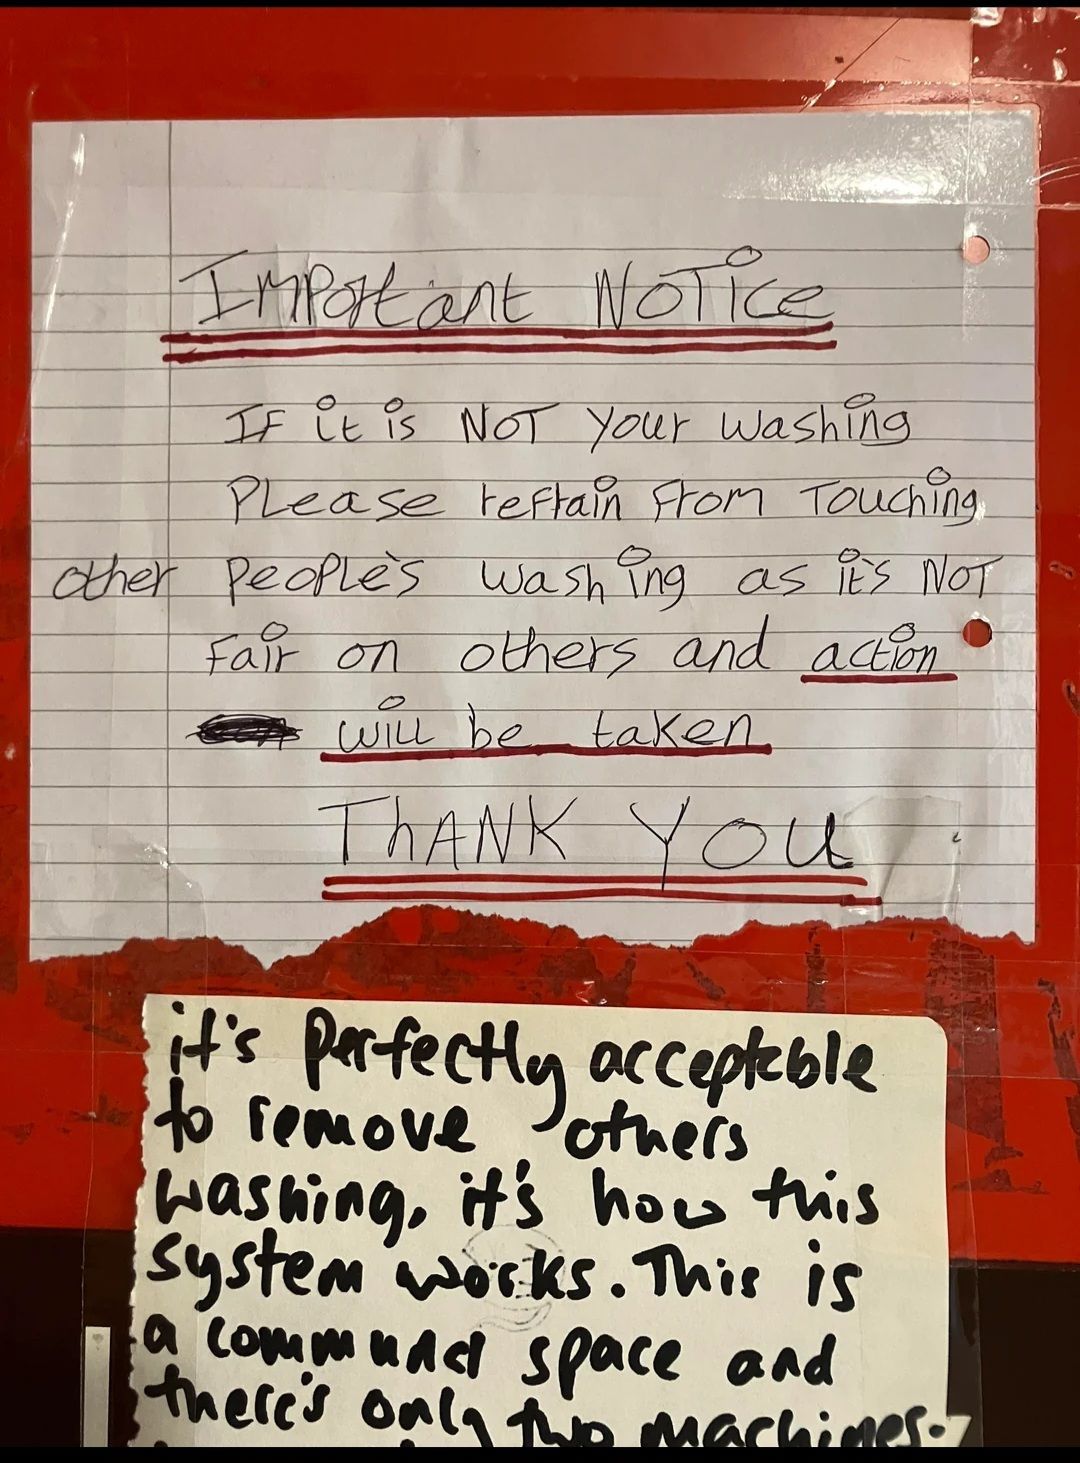 Important NOTICE
IF it is NOT your washing
Please refrain from Touching
other people's washing as it's NOT
Fair on others and action
will be taken
THANK YOU
it's perfectly acceptable
to remove others
washing, it's how this
system works. This is
a communal space and
there's only two machines.